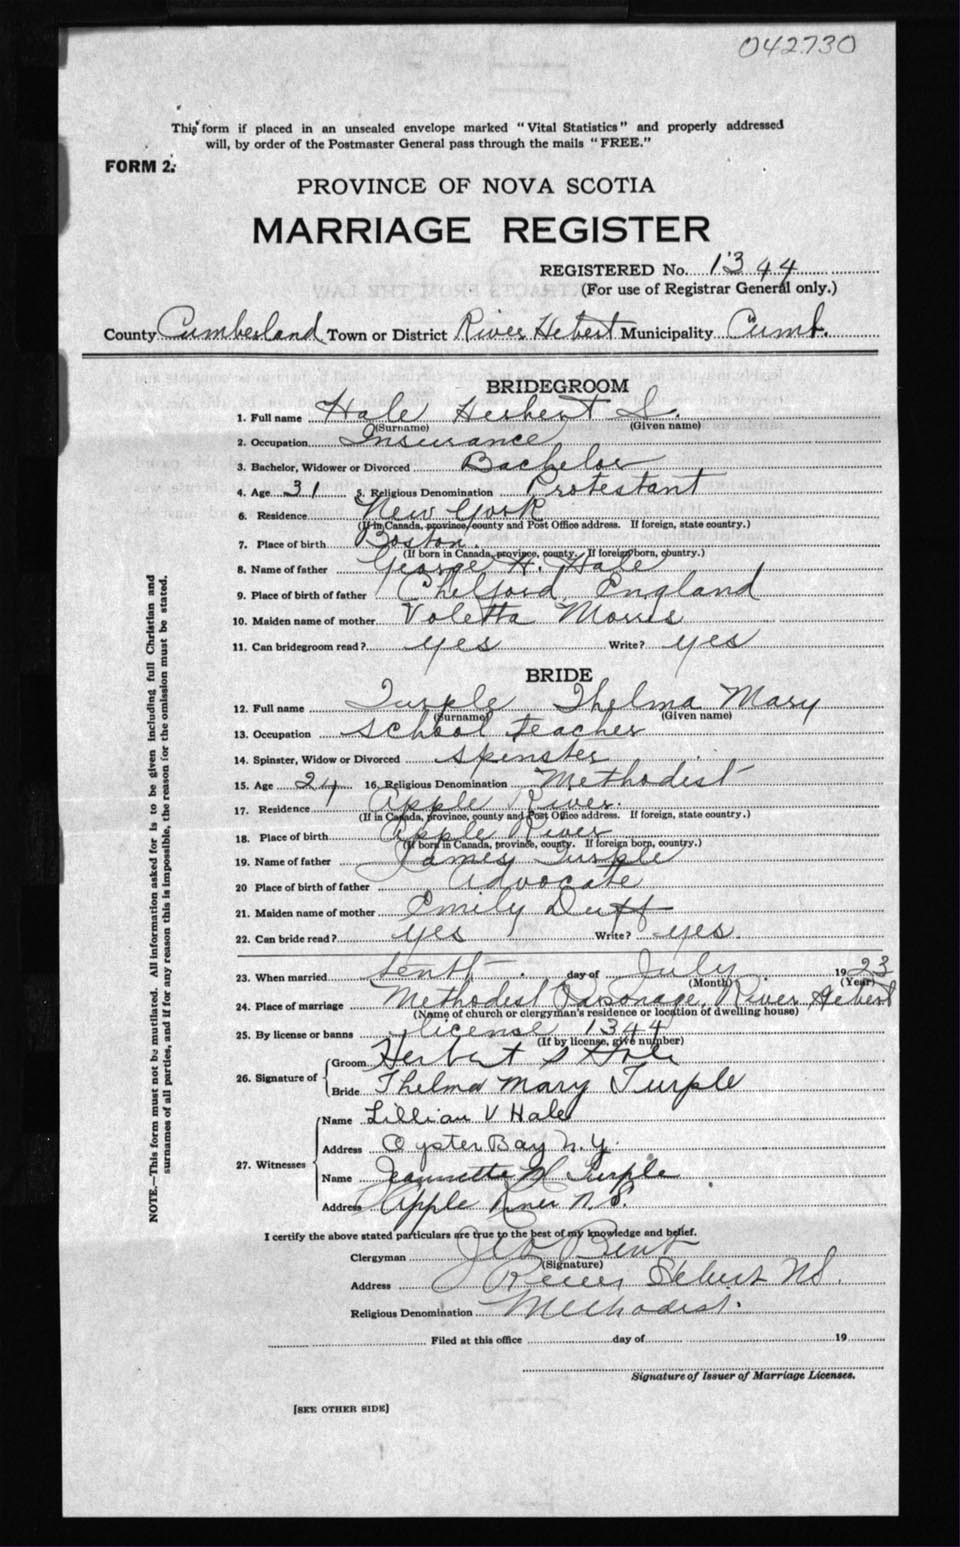 042730
This form if placed in an unsealed envelope marked "Vital Statistics" and properly addressed
will, by order of the Postmaster General pass through the mails "FREE."
FORM 2.
PROVINCE OF NOVA SCOTIA
MARRIAGE REGISTER
REGISTERED No. 1344
(For use of Registrar General only.)
County Cumberland Town or District River Hebert Municipality Cumb.
BRIDEGROOM
1. Full name Hale Herbert S.
(Surname) (Given name)
2. Occupation Insurance
3. Bachelor, Widower or Divorced Bachelor
4. Age 31 5. Religious Denomination Protestant
6. Residence New York
(If in Canada, province, county and Post Office address. If foreign, state country.)
7. Place of birth Boston.
(If born in Canada, province, county. If foreign born, country.)
8. Name of father George H. Hale
9. Place of birth of father Chelford, England
10. Maiden name of mother Voletta Morris
11. Can bridegroom read? yes Write? yes
BRIDE
12. Full name Turple Thelma Mary
(Surname) (Given name)
13. Occupation School teacher
14. Spinster, Widow or Divorced Spinster
15. Age 24 16. Religious Denomination Methodist
17. Residence Apple River.
(If in Canada, province, county and Post Office address. If foreign, state country.)
18. Place of birth Apple River
(If born in Canada, province, county. If foreign born, country.)
19. Name of father James Turple
20 Place of birth of father Advocate
21. Maiden name of mother Emily Duff
22. Can bride read? yes Write? yes.
23. When married tenth day of July 1923
(Month) (Year)
24. Place of marriage Methodist Parsonage, River Hebert
(Name of church or clergyman's residence or location of dwelling house)
25. By license or banns license 1344
(If by license, give number)
26. Signature of
Groom Herbert S Hale
Bride Thelma Mary Turple
27. Witnesses
Name Lillian V Hale
Address Oyster Bay N.Y.
Name Jeannette M Turple
Address Apple River N.S.
I certify the above stated particulars are true to the best of my knowledge and belief.
Clergyman Bent
(Signature)
Address River Hebert N.S.
Religious Denomination Methodist.
Filed at this office day of 19
Signature of Issuer of Marriage Licenses.
[SEE OTHER SIDE]
NOTE.—This form must not be mutilated. All information asked for is to be given including full Christian and
surnames of all parties, and if for any reason this is impossible, the reason for the omission must be stated.